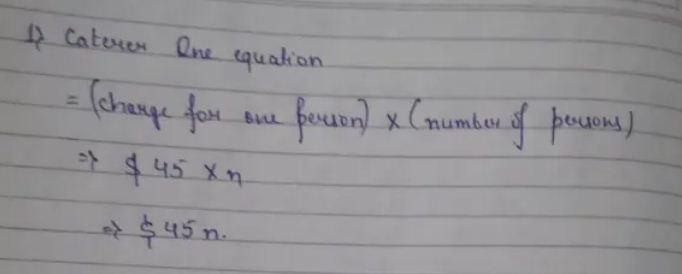 1) Caterer One equation
= (charge for one person) × (number of persons)
⇒ $ 45 × n
⇒ $ 45 n.